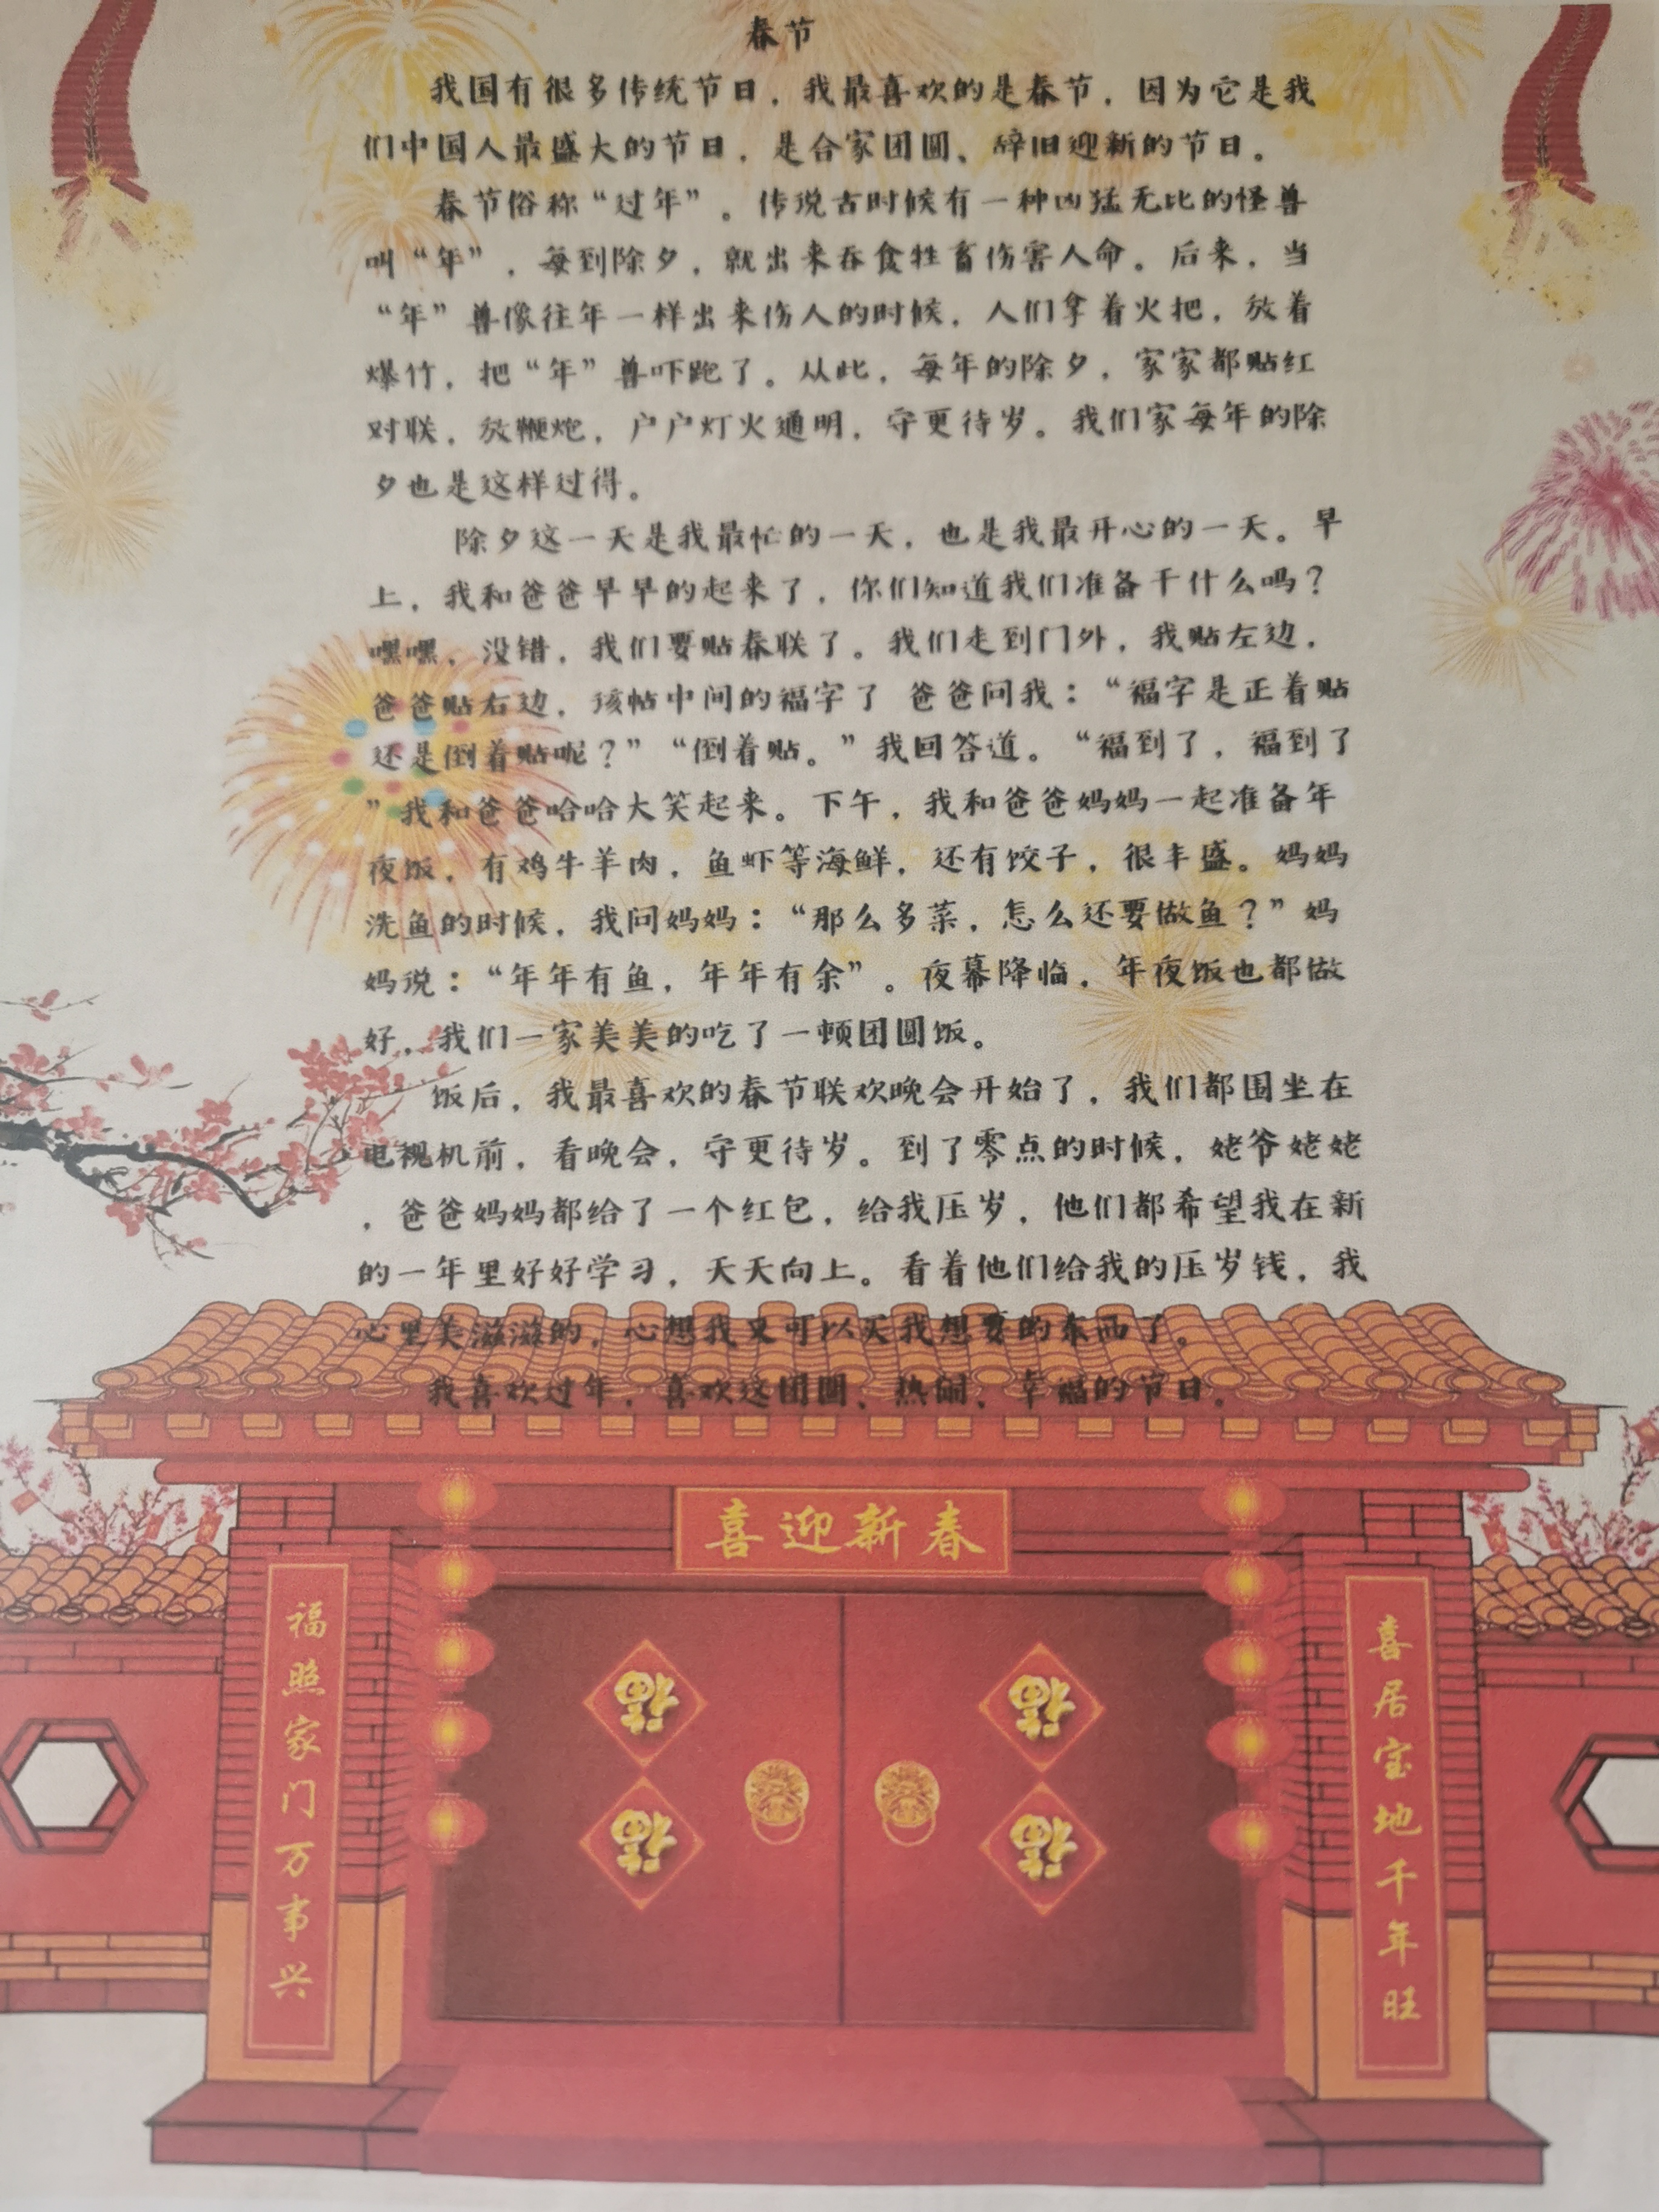 春节
我国有很多传统节日，我最喜欢的是春节，因为它是我
们中国人最盛大的节日，是合家团圆、辞旧迎新的节日。
春节俗称“过年”。传说古时候有一种凶猛无比的怪兽
叫“年”，每到除夕，就出来吞食牲畜伤害人命。后来，当
“年”兽像往年一样出来伤人的时候，人们拿着火把，放着
爆竹，把“年”兽吓跑了。从此，每年的除夕，家家都贴红
对联，放鞭炮，户户灯火通明，守更待岁。我们家每年的除
夕也是这样过得。
除夕这一天是我最忙的一天，也是我最开心的一天。早
上，我和爸爸早早的起来了，你们知道我们准备干什么吗？
嘿嘿，没错，我们要贴春联了。我们走到门外，我贴左边，
爸爸贴右边，孩帖中间的福字了 爸爸问我：“福字是正着贴
还是倒着贴呢？”“倒着贴。”我回答道。“福到了，福到了
”我和爸爸哈哈大笑起来。下午，我和爸爸妈妈一起准备年
夜饭，有鸡牛羊肉，鱼虾等海鲜，还有饺子，很丰盛。妈妈
洗鱼的时候，我问妈妈：“那么多菜，怎么还要做鱼？”妈
妈说：“年年有鱼，年年有余”。夜幕降临，年夜饭也都做
好，我们一家美美的吃了一顿团圆饭。
饭后，我最喜欢的春节联欢晚会开始了，我们都围坐在
电视机前，看晚会，守更待岁。到了零点的时候，姥爷姥姥
，爸爸妈妈都给了一个红包，给我压岁，他们都希望我在新
的一年里好好学习，天天向上。看着他们给我的压岁钱，我
心里美滋滋的，心想我又可以买我想要的东西了。
我喜欢过年，喜欢这团圆、热闹、幸福的节日。
喜迎新春
福照家门万事兴
喜居宝地千年旺
福
福
福
福